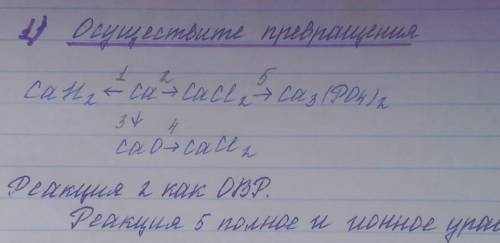 1) Осуществите превращения
CaH₂ ←1 Ca 2→ CaCl₂ 5→ Ca₃(PO₄)₂
3↓ 4
CaO → CaCl₂
Реакция 2 как ОВР.
Реакция 5 полное и ионное урав